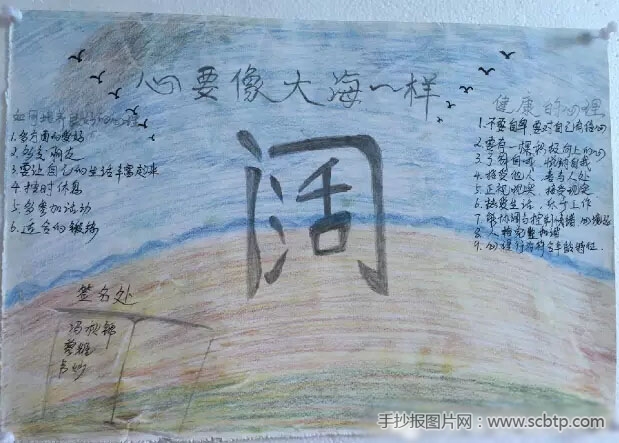 心要像大海一样
阔
如何培养健康的心理
1.多方面的爱好
2.多交朋友
3.要让自己的生活丰富起来
4.按时休息
5.多参加活动
6.适当的锻炼
签名处
健康的心理
1.不要自卑,要对自己有信心
2.要有一颗积极向上的心
3.了解自我,悦纳自我
4.接受他人,善与人处
5.正视现实,接受现实
6.热爱生活,乐于工作
7.能协调与控制情绪,心境
8.人格完整和谐
9.心理行为符合年龄特征.
手抄报图片网:www.scbtp.com